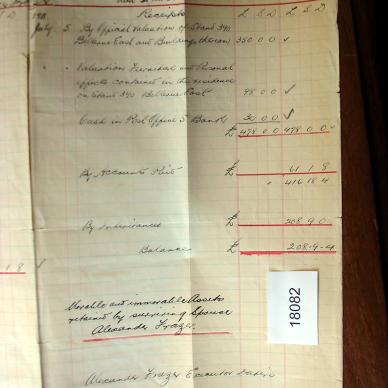 Receipts £ S D £ S D
July 5 By Official Valuation of Stand 340
Bellevue East and Buildings thereon 350 0 0
Valuation Furniture and Personal
effects contained in the residence
on Stand 340 Bellevue East 98 0 0
Cash in Post Office S Bank 30 0 0
£ 478 0 0 478 0 0
By Accounts £ 61 1 8
" 416 18 4
By Inheritances £ 208 9 0
Balance £ 208-9-4
Movable and immovable Assets
retained by surviving Spouse
Alexander Frazer
18082
Alexander Frazer Executor Dative